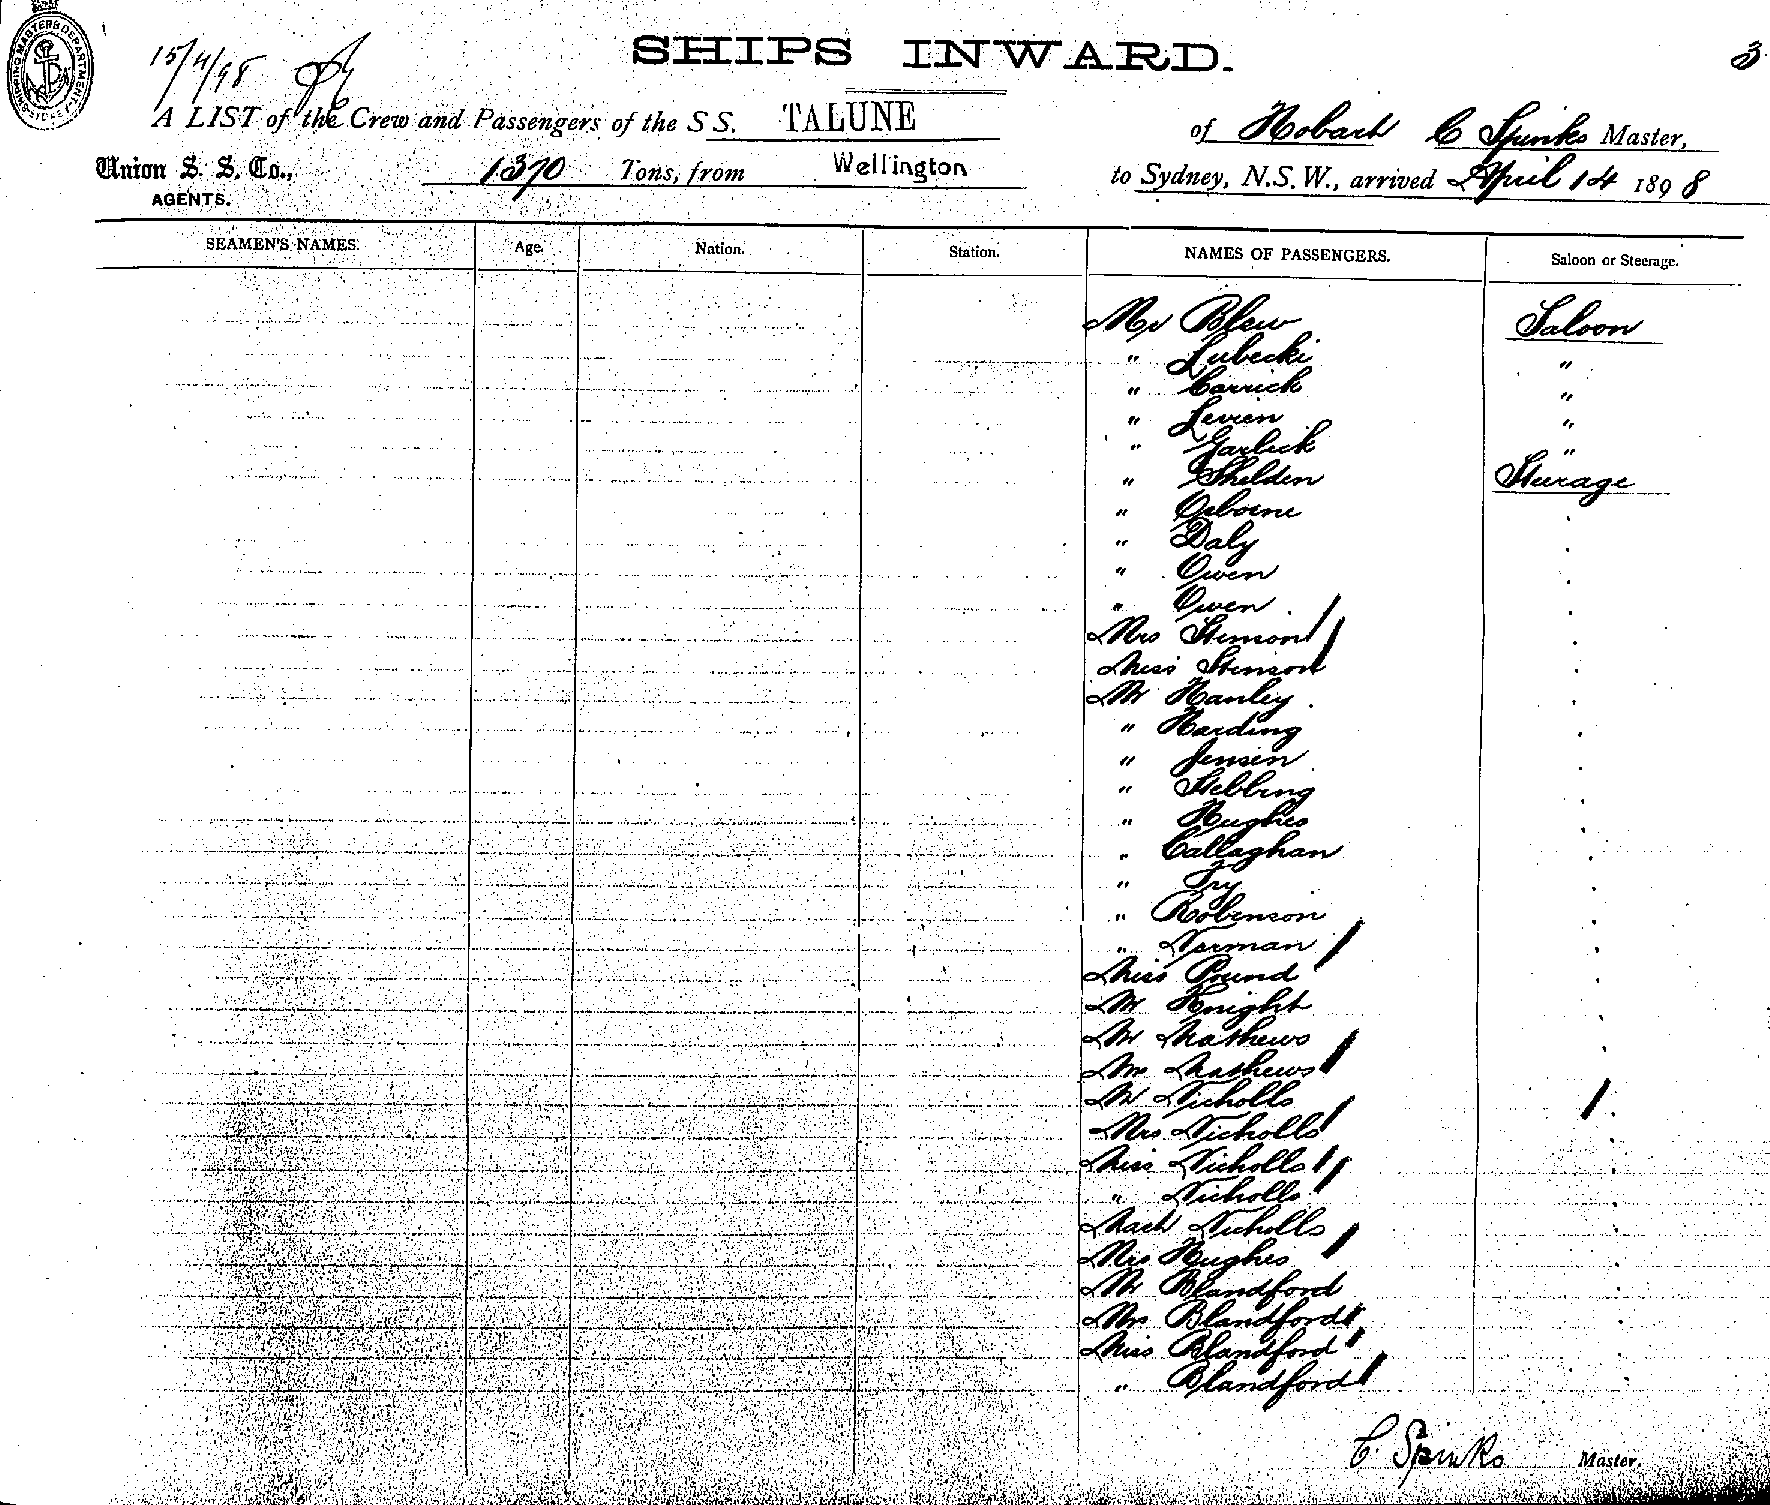 SHIPPING MASTERS DEPARTMENT SYDNEY
15/4/98
3
SHIPS INWARD.
A LIST of the Crew and Passengers of the S S. TALUNE of Hobart C Spinks Master,
Union S. S. Co., 1370 Tons, from Wellington to Sydney, N.S.W., arrived April 14 1898
AGENTS.
SEAMEN'S NAMES. Age. Nation. Station. NAMES OF PASSENGERS. Saloon or Steerage.
Mr Blew Saloon
" Lubecki "
" Carrick "
" Levien "
" Garlick "
" Shelden Steerage
" Osborne
" Daly
" Owen
" Owen
Mrs Stimson
Miss Stimson
Mr Hanley
" Harding
" Jensen
" Stebbing
" Hughes
" Callaghan
" Try
" Robinson
" Norman
Miss Pound
Mr Knight
Mr Mathews
Mrs Mathews
Mr Nicholls
Mrs Nicholls
Miss Nicholls
" Nicholls
Mast Nicholls
Mrs Hughes
Mr Blandford
Mrs Blandford
Miss Blandford
" Blandford
C. Spinks Master.